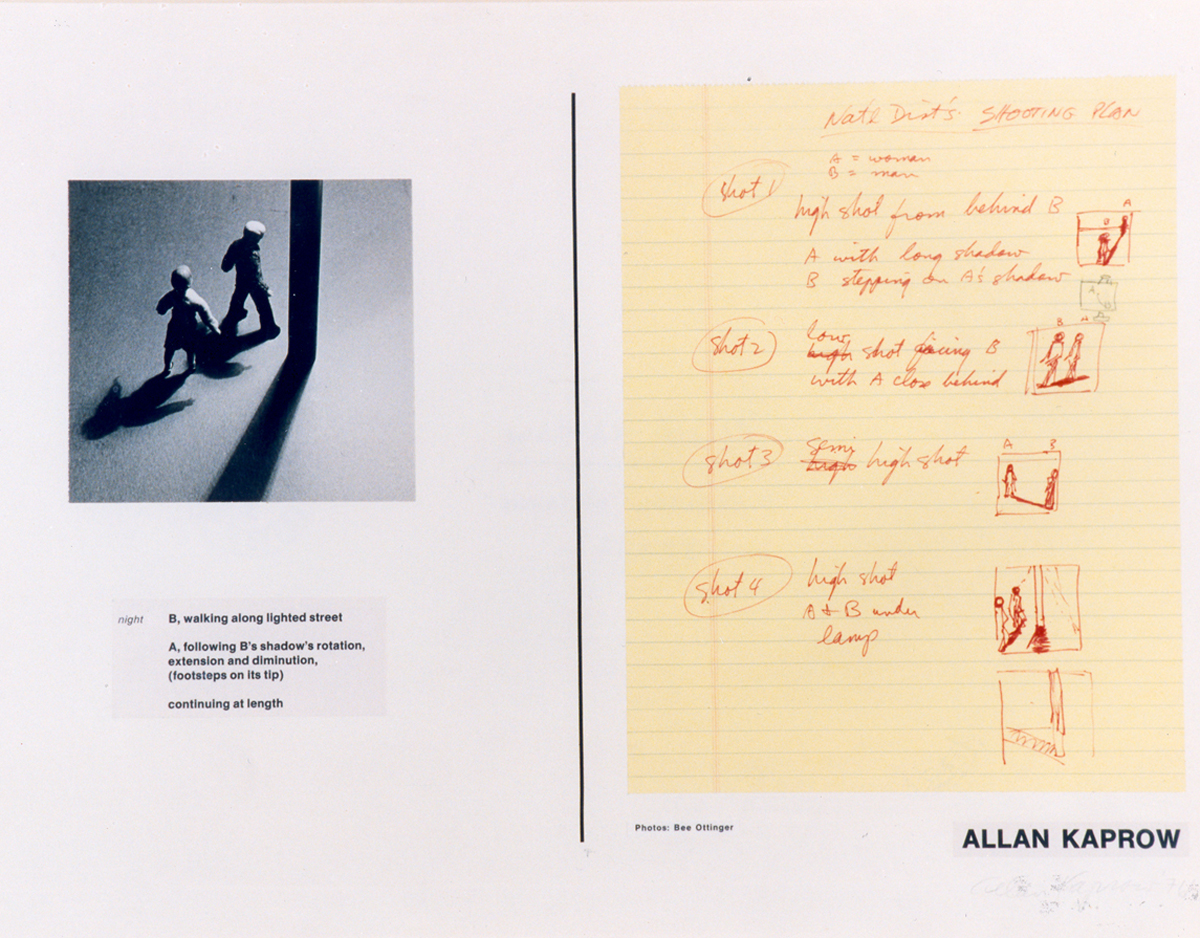 night
B, walking along lighted street
A, following B's shadow's rotation,
extension and diminution,
(footsteps on its tip)
continuing at length
Nat'l Dist's. SHOOTING PLAN
A = woman
B = man
shot 1
high shot from behind B
A with long shadow
B stepping on A's shadow
B
A
A
shot 2
low
high shot facing B
with A close behind
B A
shot 3
semi
high high shot
A B
shot 4
high shot
A & B under
lamp
Photos: Bee Ottinger
ALLAN KAPROW
Kaprow